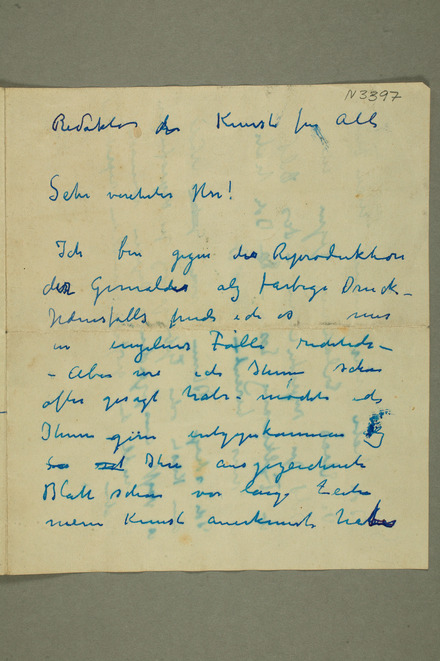 N 3397
Redaktør der Kunst für Alle
Sehr verehrter Herr!
Ich bin gegen die Reproduktion
der Gemaldes als farbige Druck –
finde ich es nur
in einzelnes Falle
– Aber wie ich Ihnen schon
ofter gesagt habe – möchte ich
Ihnen gern entgegenkommen
Ihre ausgezeichnete
Blatt schon vor lange Zeit
meine Kunst anerkannt habe